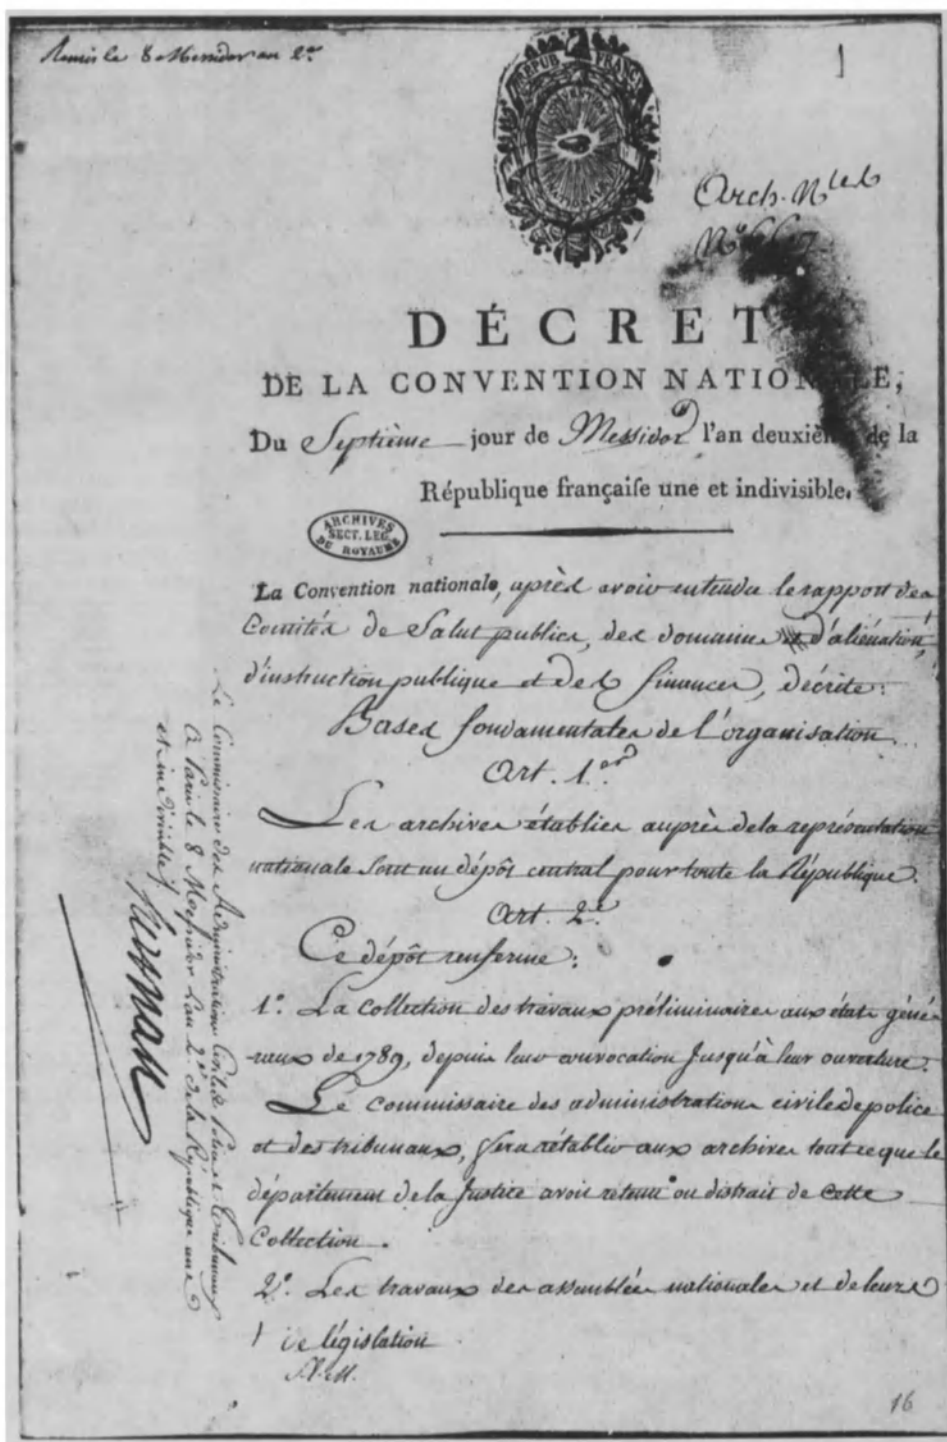 Remis le 8 Messidor an 2.e
1
RÉPUB. FRANC.
CONVENTION
NATIONALE
Arch. N.les
N.o
DÉCRET
DE LA CONVENTION NATIONALE,
Du Septième jour de Messidor l'an deuxième de la
République françaiſe une et indivisible.
ARCHIVES
SECT. LEG.
DU ROYAUME
La Convention nationale, après avoir entendu le rapport des
Comités de Salut public, des domaines d'aliénation,
d'instruction publique et des finances, décrète:
Bases fondamentales de l'organisation.
Art. 1.er
Les archives établies auprès de la représentation
nationale sont un dépôt central pour toute la République.
Art. 2.e
Ce dépôt renferme:
1.o La collection des travaux préliminaires aux états géné-
raux de 1789, depuis leur convocation jusqu'à leur ouverture.
Le commissaire des administrations civiles de police
et des tribunaux, fera rétablir aux archives tout ce que le
département de la justice avoit retenu ou distrait de cette
Collection.
2.o Les travaux des assemblées nationales et de leurs
1 de législation
16
Le Commissaire des Administrations Civiles Police et Tribunaux
à Paris le 8 Messidor L'an 2.e de la République une
et indivisible
Herman